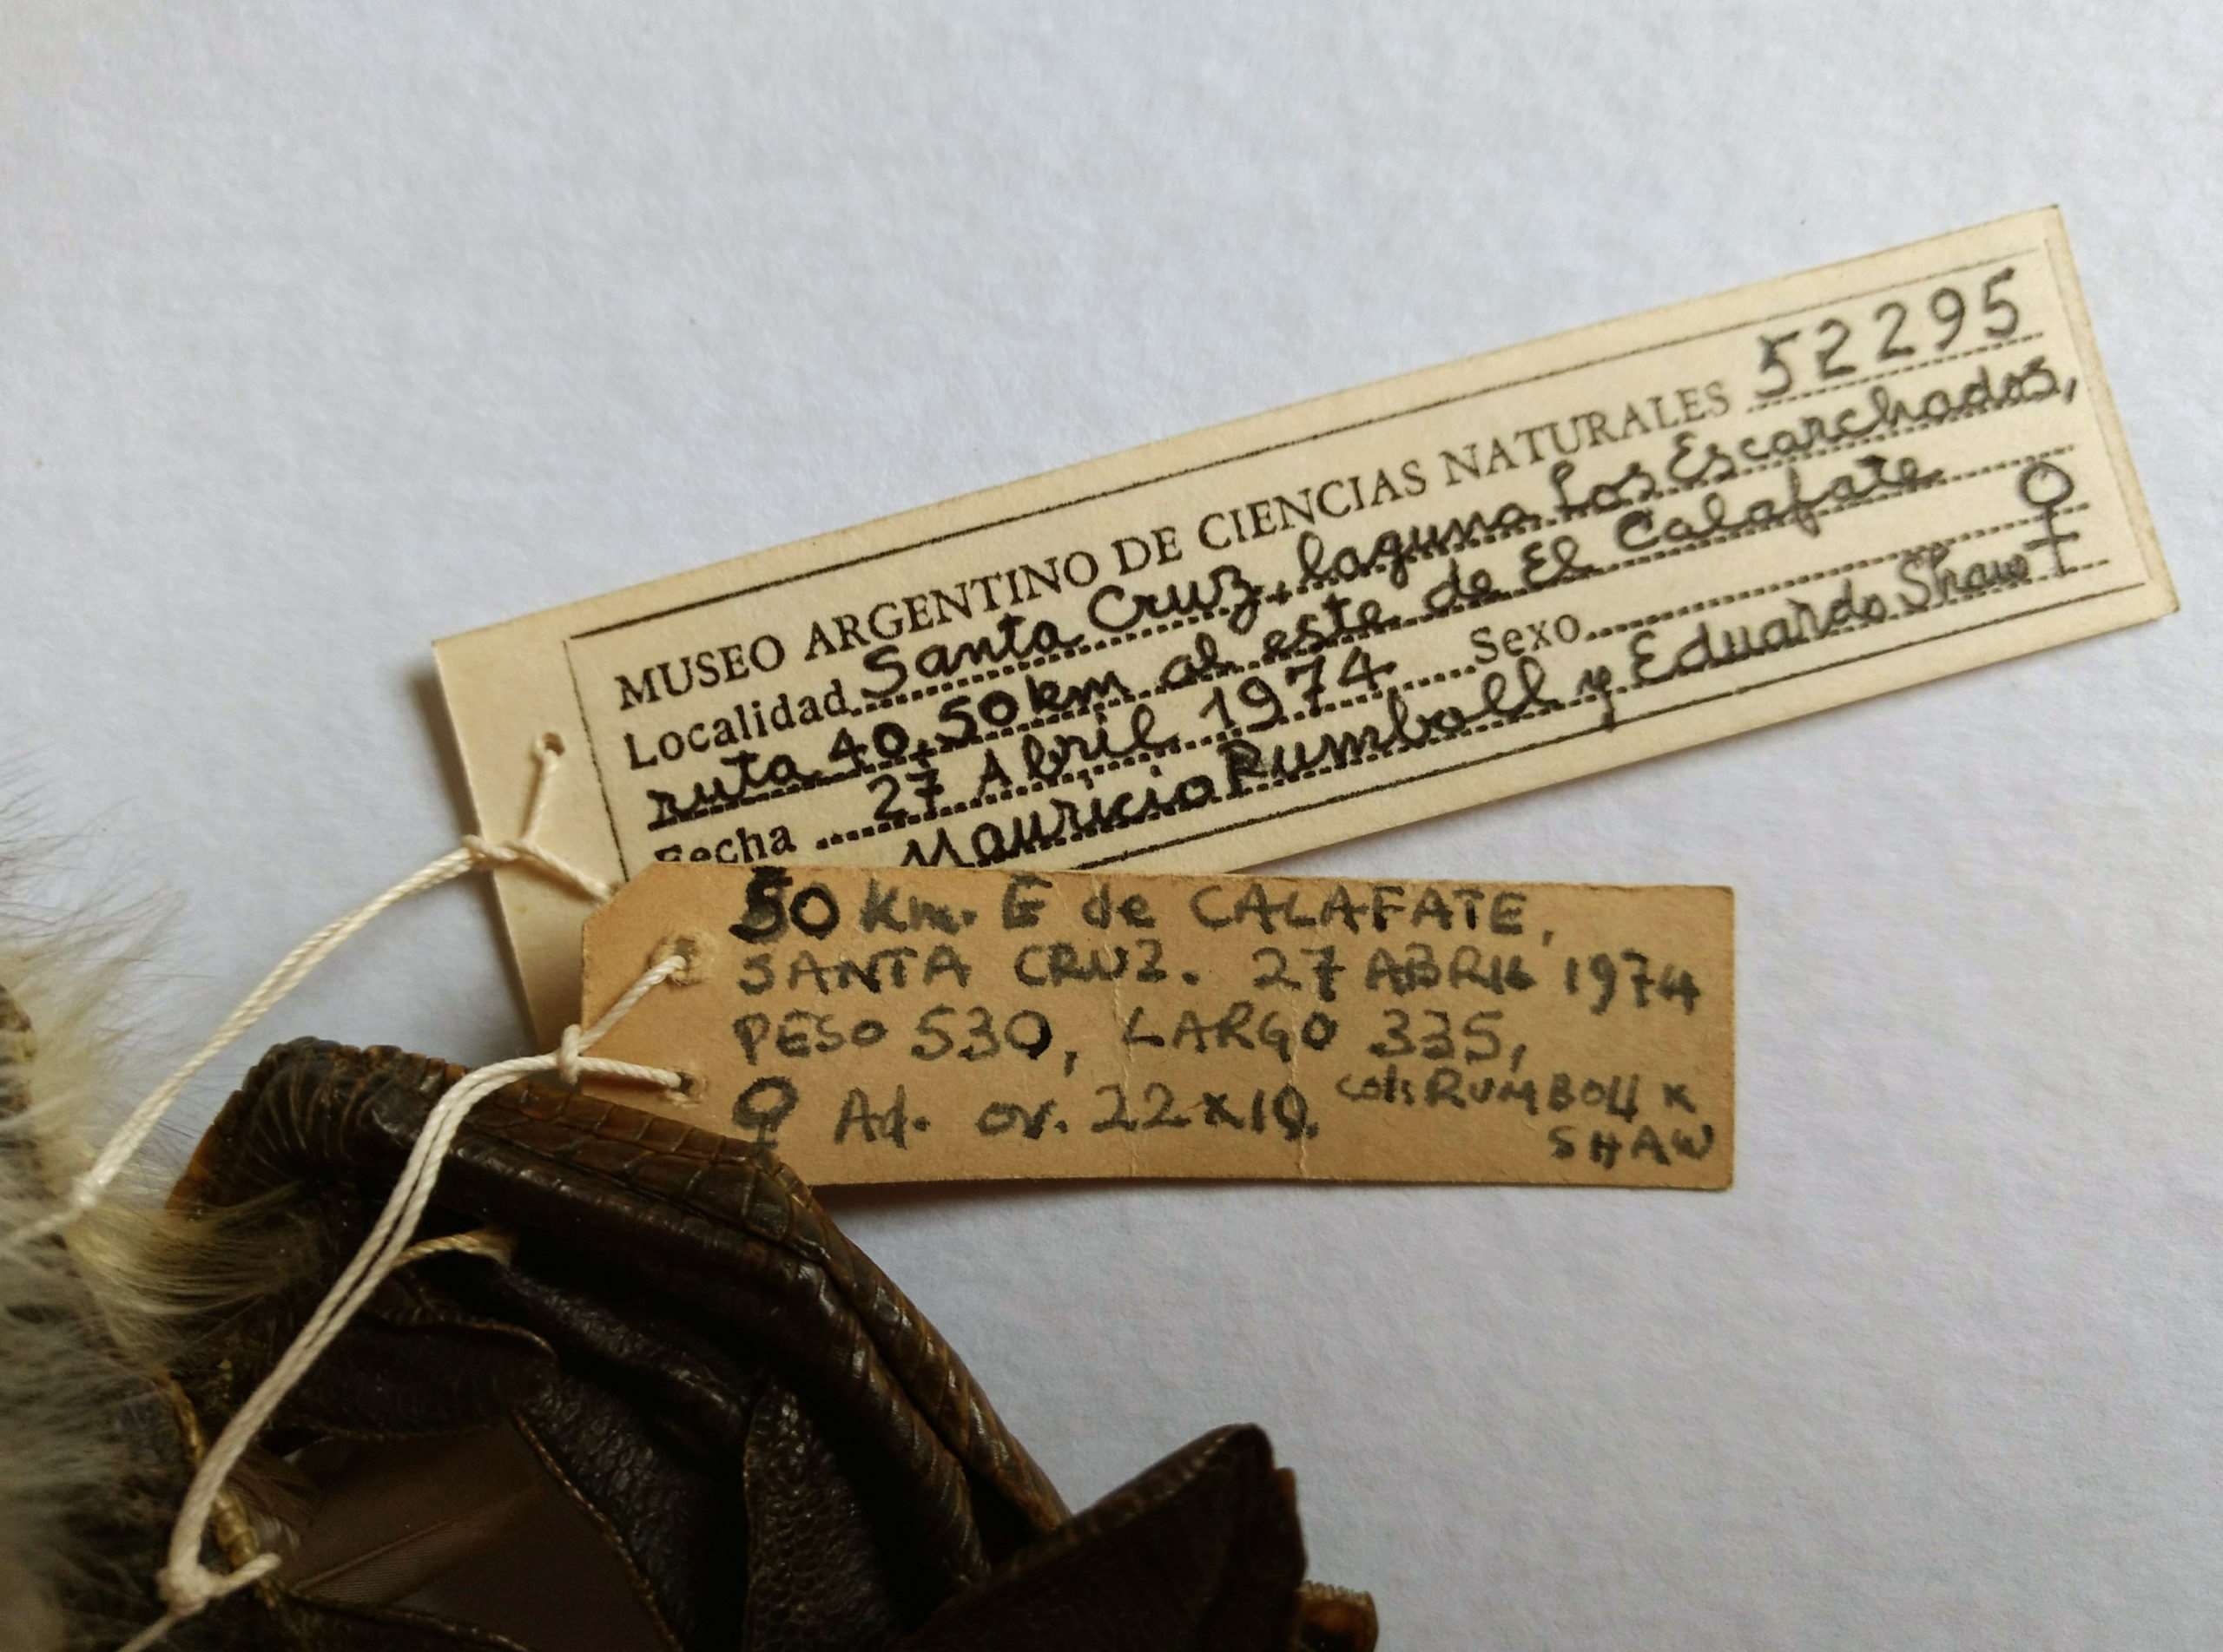 MUSEO ARGENTINO DE CIENCIAS NATURALES 52295
Localidad Santa Cruz, laguna Los Escarchados,
ruta 40, 50 km al este de El Calafate
Fecha 27 Abril 1974 Sexo ♀
Mauricio Rumboll y Eduardo Shaw
50 km. E de CALAFATE,
SANTA CRUZ. 27 ABRIL 1974
PESO 530, LARGO 335,
♀ Ad. ov. 22x10. col: RUMBOLL x
SHAW